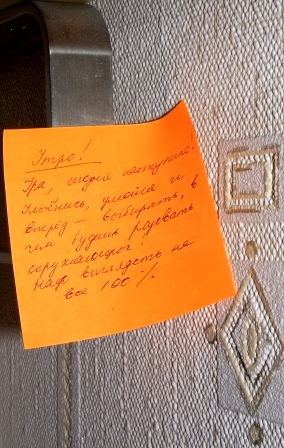 Утро!
Ура, сегодня наступило!
Улыбнись, умойся и
вперёд - выбирать, в
чем будешь радовать
окружающих!
Надо выглядеть на
все 100 %.